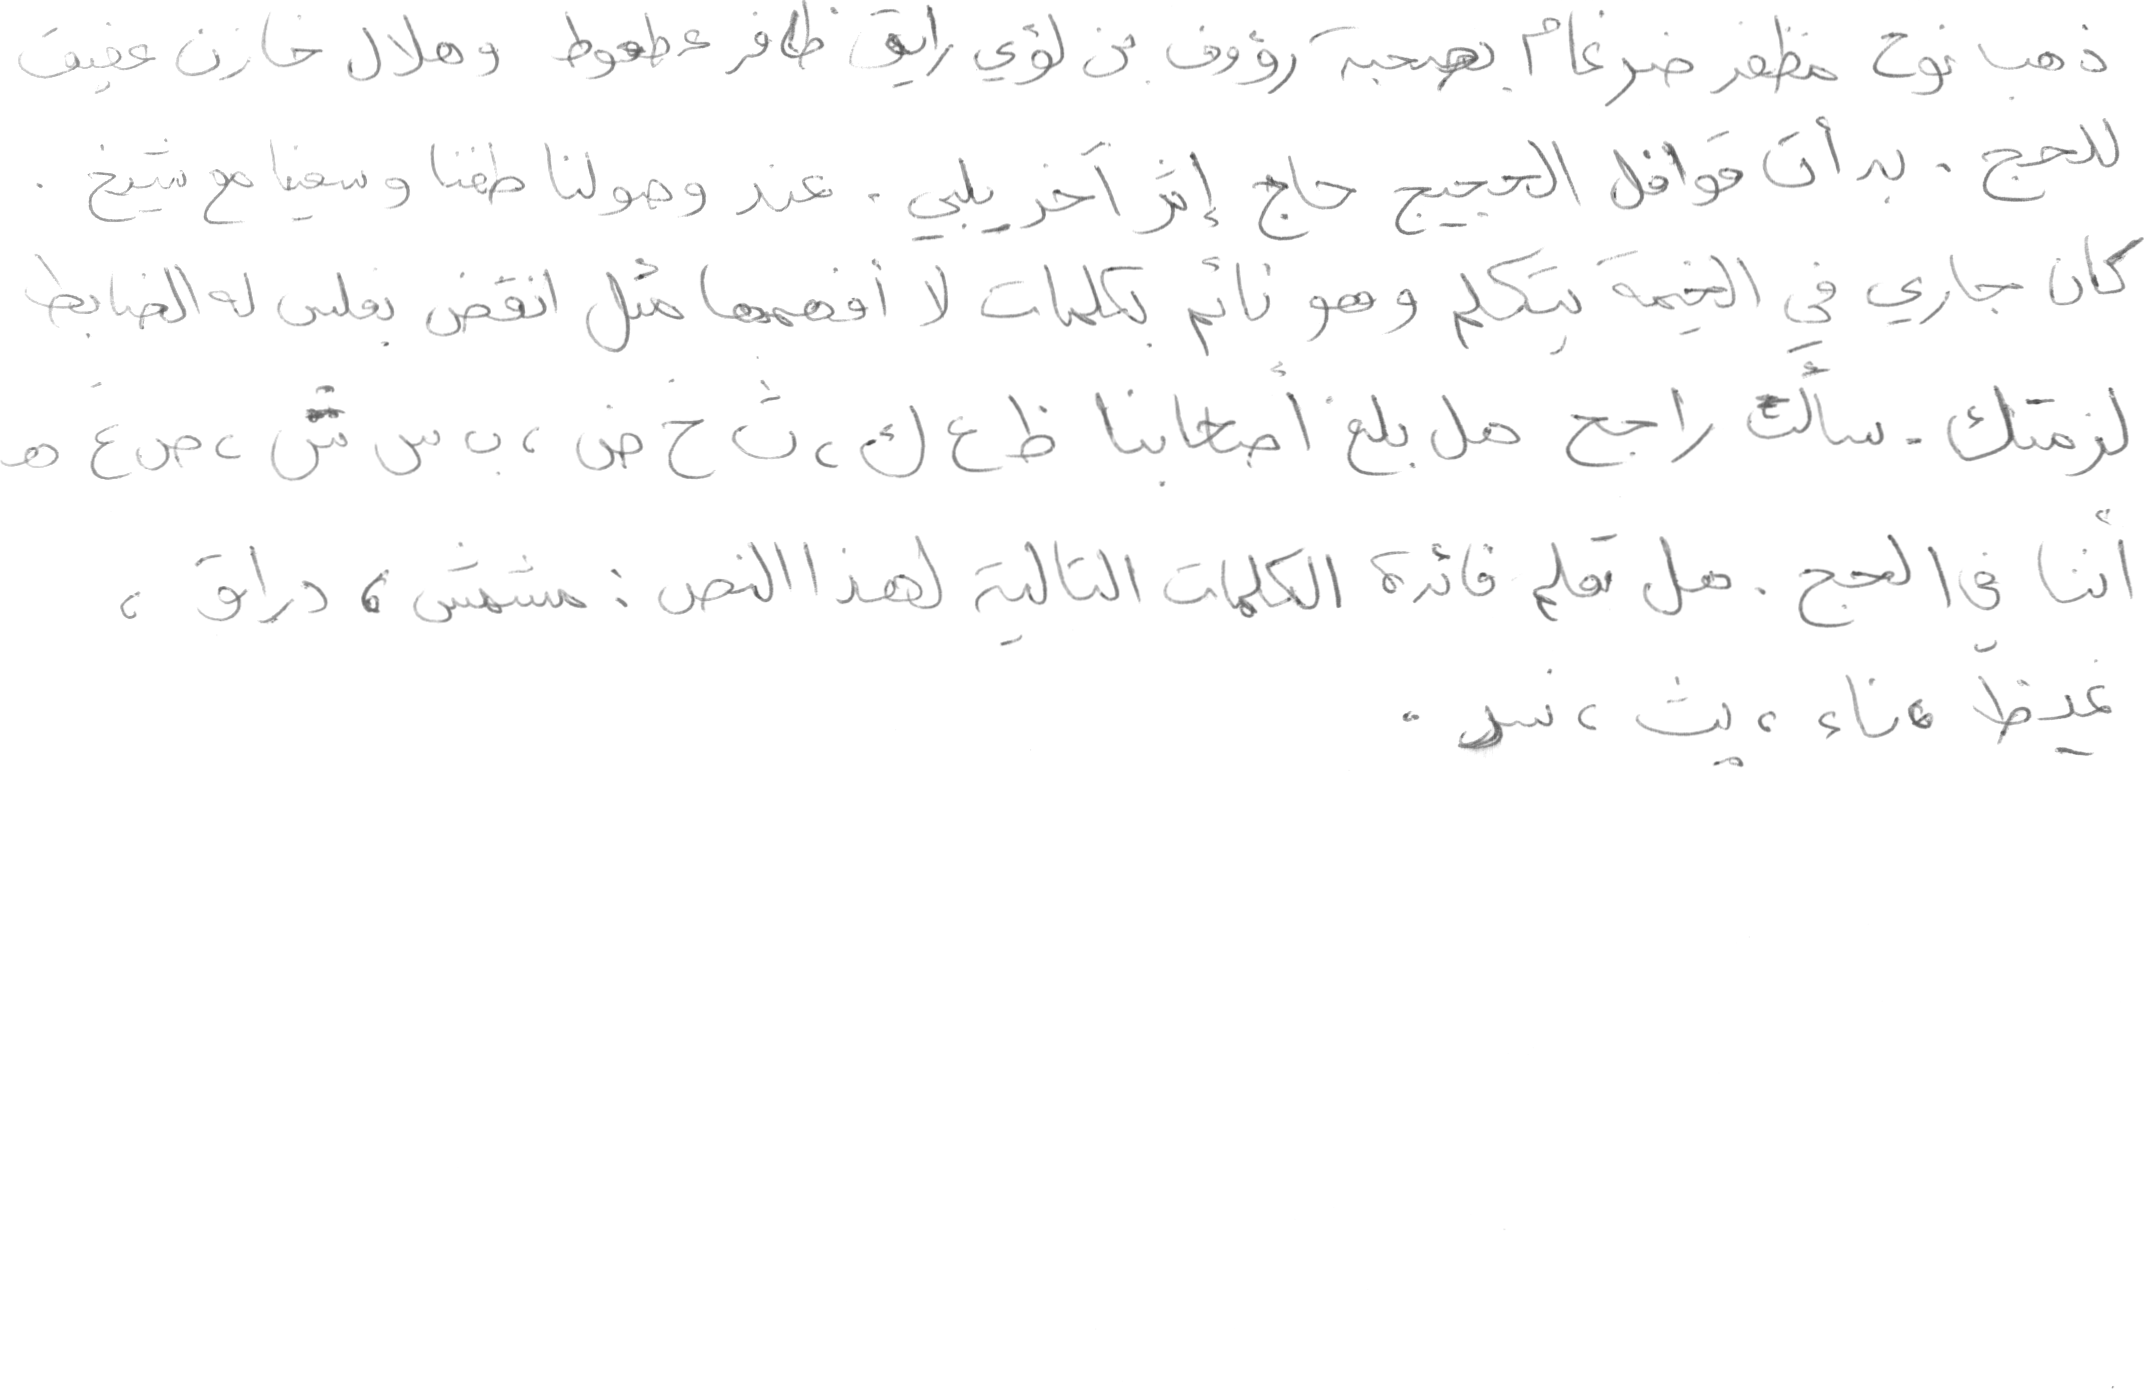 ذهب نوح مظفر ضرغام بصحبة رؤوف بن لؤي رايق ظافر عطعوط وهلال خازن عفيف
للحج . بدأت قوافل الحجيج حاج إثر آخر يلبي . عند وصولنا طفنا وسعينا مع شيخ .
كان جاري في الخيمة يتكلم وهو نائم بكلمات لا أفهمها مثل انقض بفلس له الضابط
لزمتك . سألت راجح هل بلغ أصحابنا ظ ع ك ، ث خ ض ، ب س ش ، ص غ هـ
أننا في الحج . هل تعلم فائدة الكلمات التالية لهذا النص : مشمش ، دراق ،
غيظ ، ناء ، يث ، نسر .